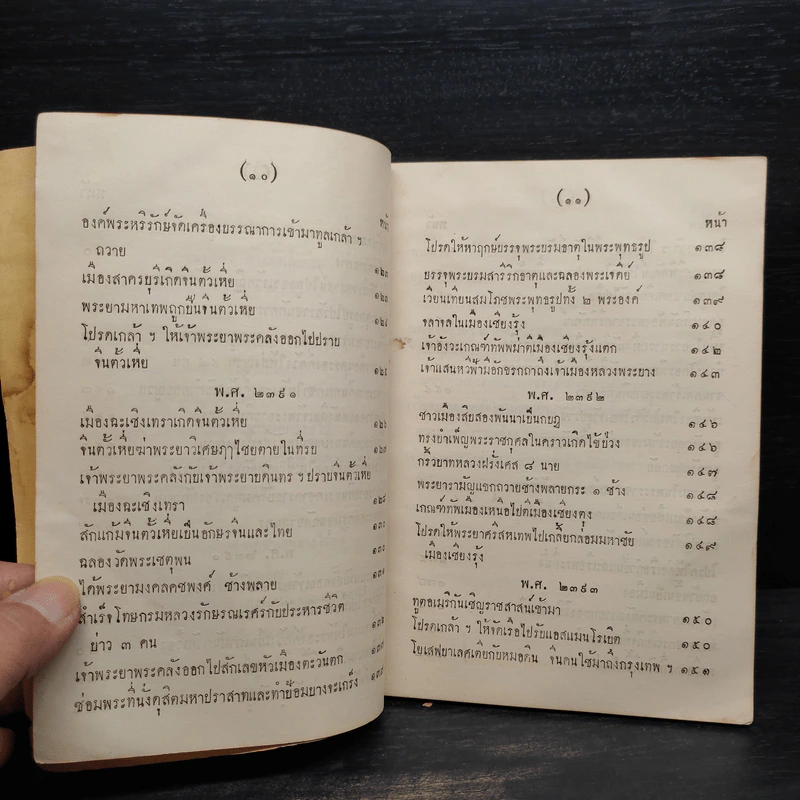 (๑๐)
หน้า
องค์พระหริรักษ์จัดเครื่องบรรณาการเข้ามาทูลเกล้า ฯ
ถวาย ๑๒๓
เมืองสาครบุรีเกิดจีนตั้วเหี่ย ๑๒๓
พระยามหาเทพถูกปืนจีนตั้วเหี่ย ๑๒๔
โปรดเกล้า ฯ ให้เจ้าพระยาพระคลังออกไปปราบ
จีนตั้วเหี่ย ๑๒๔
พ.ศ. ๒๓๙๑
เมืองฉะเชิงเทราเกิดจีนตั้วเหี่ย ๑๒๖
จีนตั้วเหี่ยฆ่าพระยาวิเศษฦๅไชยตายในที่รบ ๑๒๗
เจ้าพระยาพระคลังกับเจ้าพระยาบดินทร ฯ ปราบจีนตั้วเหี่ย
เมืองฉะเชิงเทรา ๑๒๘
สักแก้มจีนตั้วเหี่ยเป็นอักษรจีนและไทย ๑๓๐
ฉลองวัดพระเชตุพน ๑๓๐
ได้พระยามงคลคชพงศ์ ช้างพลาย ๑๓๑
สำเร็จโทษกรมหลวงรักษรณเรศร์กับประหารชีวิต
บ่าว ๓ คน ๑๓๒
เจ้าพระยาพระคลังออกไปสักเลขหัวเมืองตะวันตก
ซ่อมพระที่นั่งดุสิตมหาปราสาทและทำป้อมบางจะเกร็ง
(๑๑)
หน้า
โปรดให้หาฤกษ์บรรจุพระบรมธาตุในพระพุทธรูป ๑๓๘
บรรจุพระบรมสาริริกธาตุและฉลองพระเจดีย์ ๑๓๘
เวียนเทียนสมโภชพระพุทธรูปทั้ง ๒ พระองค์ ๑๓๙
จลาจลในเมืองเชียงรุ้ง ๑๔๐
เจ้าอังวะเกณฑ์ทัพพม่าตีเมืองเชียงรุ้งแตก ๑๔๒
เจ้าแสนหวีฟ้ามีอักษรกถาถึงเจ้าเมืองหลวงพระบาง ๑๔๓
พ.ศ. ๒๓๙๒
ชาวเมืองสิบสองพันนาเป็นกบฏ ๑๔๖
ทรงบำเพ็ญพระราชกุศลในคราวเกิดไข้ป่วง ๑๔๖
กรุ้วบาทหลวงฝรั่งเศส ๘ นาย ๑๔๗
พระยารามัญแขกถวายช้างพลายกระ ๑ ช้าง ๑๔๘
เกณฑ์ทัพเมืองเหนือไปตีเมืองเชียงตุง ๑๔๘
โปรดให้พระยาศรีสหเทพไปเกลี้ยกล่อมมหาชัย ๑๔๙
เมืองเชียงรุ้ง
พ.ศ. ๒๓๙๓
ทูตอเมริกันเชิญราชสาสน์เข้ามา ๑๕๐
โปรดเกล้า ฯ ให้จัดเรือไปรับแอสแมนโรเบิต ๑๕๐
โยเสฟบาเลศเตียกับหมอดีน จีนคนใช้มาถึงกรุงเทพ ฯ ๑๕๑